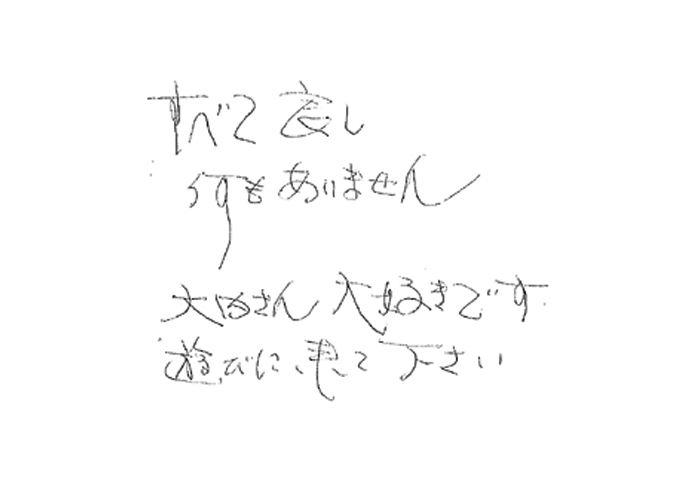 すべて良し
何もありません
大田さん大好きです
遊びに来て下さい